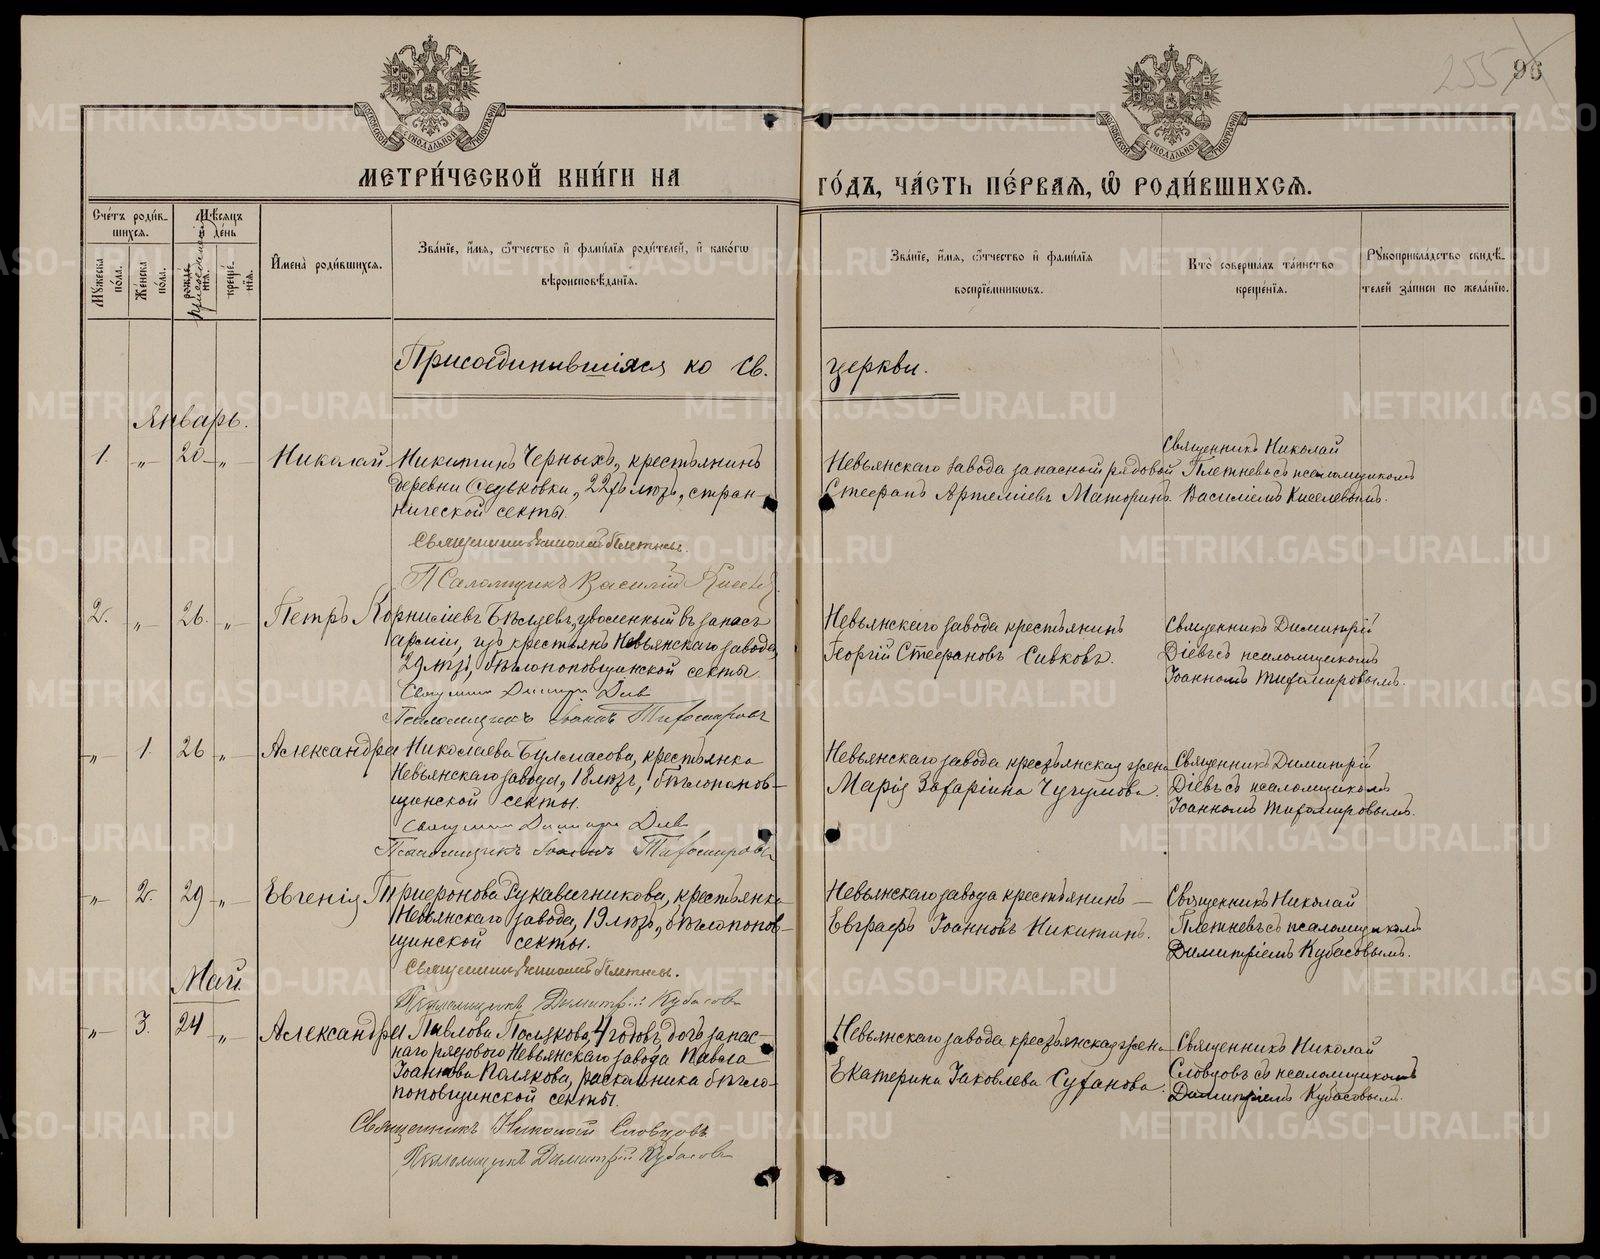 255 96
МОСКОВСКОЙ СѴНОДАЛЬНОЙ ТИПОГРАФІИ
МОСКОВСКОЙ СѴНОДАЛЬНОЙ ТИПОГРАФІИ
МЕТРИ́ЧЕСКОЙ КНИ́ГИ НА ГО́ДЪ, ЧА́СТЬ ПЕ́РВАѦ, Ѽ РОДИ́ВШИХСѦ.
Сче́тъ роди́в-
шихсѧ.
Мꙋжеска по́ла.
Же́нска по́ла.
Мѣ́сѧцъ
и҆ де́нь
рожде́-
нїѧ.
креще́-
нїѧ.
И҆мена̀ роди́вшихсѧ.
Зва́нїе, и҆́мѧ, ѻ҆́тчество и҆ фами́лїѧ роди́телей, и҆ како́гѡ
вѣроисповѣ́данїѧ.
Зва́нїе, и҆́мѧ, ѻ҆́тчество и҆ фами́лїѧ
воспрїе́мникѡвъ.
Кто̀ соверша́лъ та́инство
креще́нїѧ.
Рꙋкоприкла́дство свидѣ́-
телей за́писи по жела́нїю.
Присоединившіяся ко св. церкви.
Январь.
1. „ 20 „ Николай Никитинъ Черныхъ, крестьянинъ
деревни Федьковки, 22хъ лѣтъ, стран-
нической секты.
Священникъ Николай Плетневъ.
Псаломщикъ Василій Киселев
Невьянскаго завода запасной рядовой
Стефанъ Артеміевъ Маторинъ.
Священникъ Николай
Плетневъ съ псаломщикомъ
Василіемъ Киселевымъ.
2. „ 26. „ Петръ Корниліевъ Бѣляевъ, уволенный въ запасъ
арміи, изъ крестьянъ Невьянскаго завода,
29 лѣтъ, бѣглопоповщинской секты.
Священникъ Димитрій Діевъ
Псаломщикъ Іоаннъ Тихомировъ
Невьянскаго завода крестьянинъ
Георгій Стефановъ Сивковъ.
Священникъ Димитрій
Діевъ съ псаломщикомъ
Іоанномъ Тихомировымъ.
„ 1. 26 „ Александра Николаева Булмасова, крестьянка
Невьянскаго завода, 18 лѣтъ, бѣглопопов-
щинской секты.
Священникъ Димитрій Діевъ
Псаломщикъ Іоаннъ Тихомировъ
Невьянскаго завода крестьянская жена
Марія Захаріина Чугумова.
Священникъ Димитрій
Діевъ съ псаломщикомъ
Іоанномъ Тихомировымъ.
„ 2. 29 „ Евгенія Трифонова Рукавичникова, крестьянка
Невьянскаго завода, 19 лѣтъ, бѣглопопов-
щинской секты.
Священникъ Николай Плетневъ.
Псаломщикъ Димитрій Кубасовъ
Невьянскаго завода крестьянинъ —
Евграфъ Іоанновъ Никитинъ.
Священникъ Николай
Плетневъ съ псаломщикомъ
Димитріемъ Кубасовымъ.
Май.
„ 3. 24 „ Александра Павлова Полякова, 4 годовъ, дочь запас-
наго рядового Невьянскаго завода Павла
Іоаннова Полякова, раскольника бѣгло-
поповщинской секты.
Священникъ Николай Словцовъ
Псаломщикъ Димитрій Кубасовъ
Невьянскаго завода крестьянская жена
Екатерина Іаковлева Суханова.
Священникъ Николай
Словцовъ съ псаломщикомъ
Димитріемъ Кубасовымъ.
METRIKI.GASO-URAL.RU